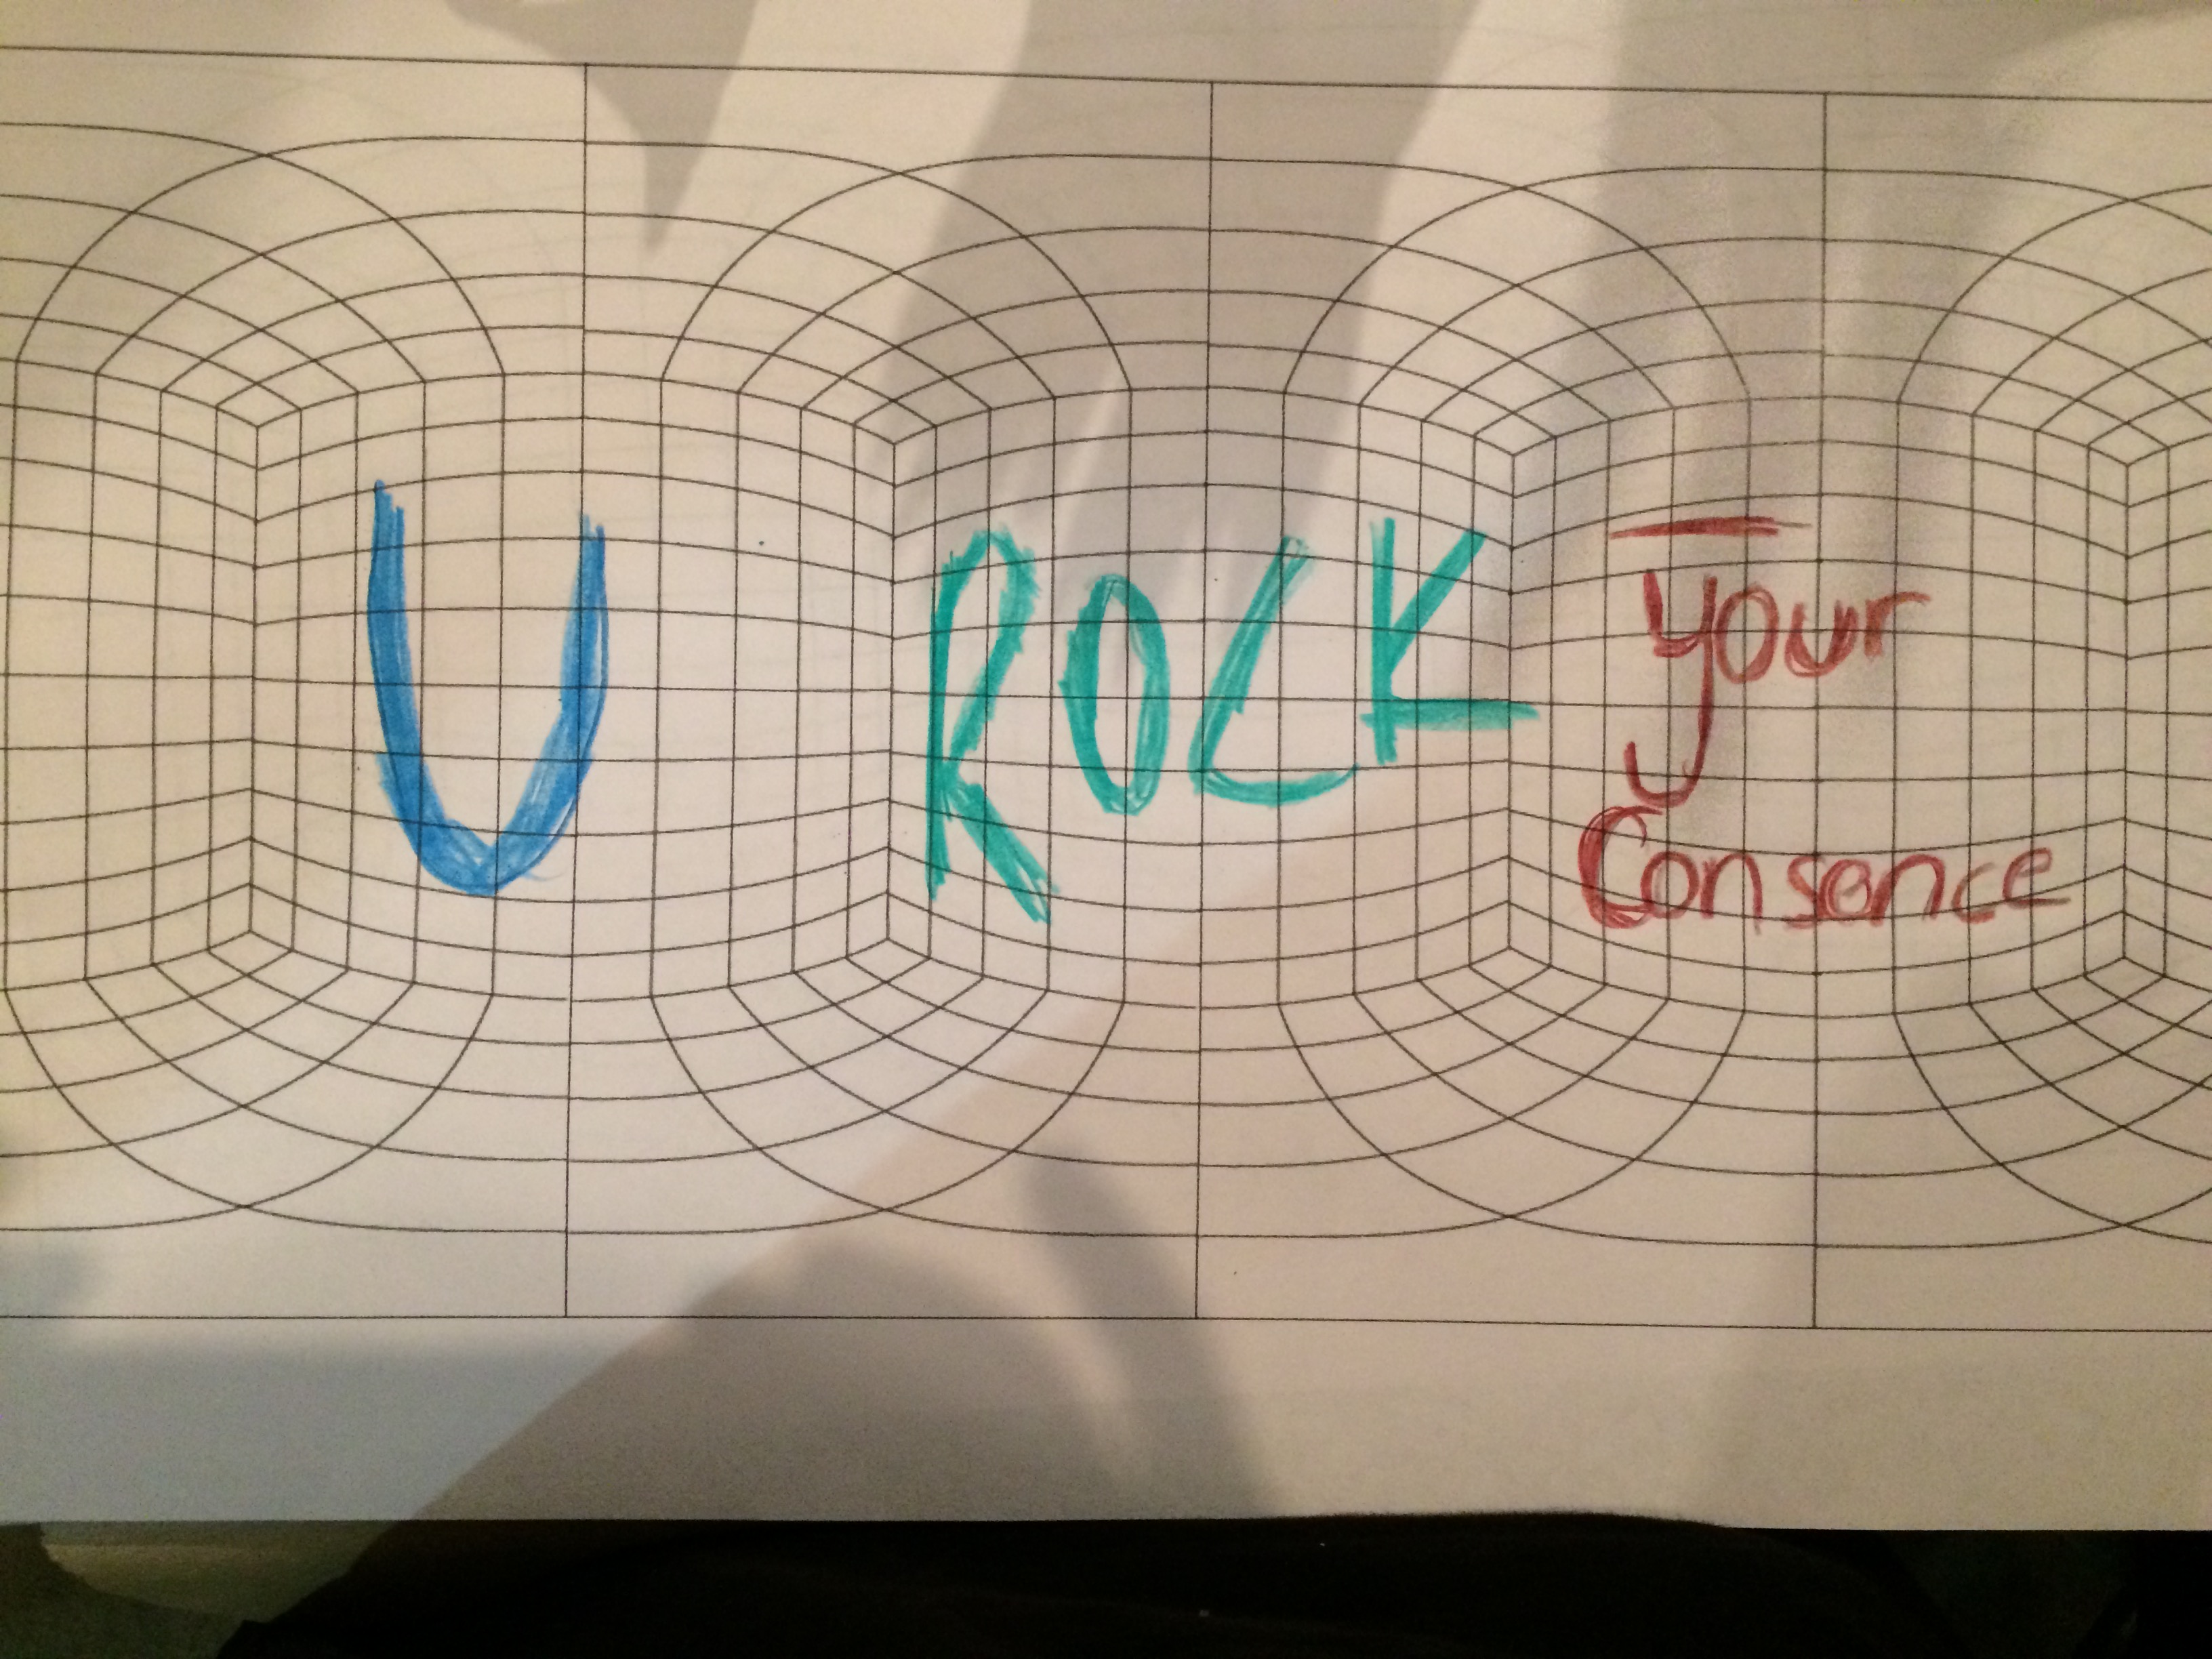 U ROCK
your
Consence